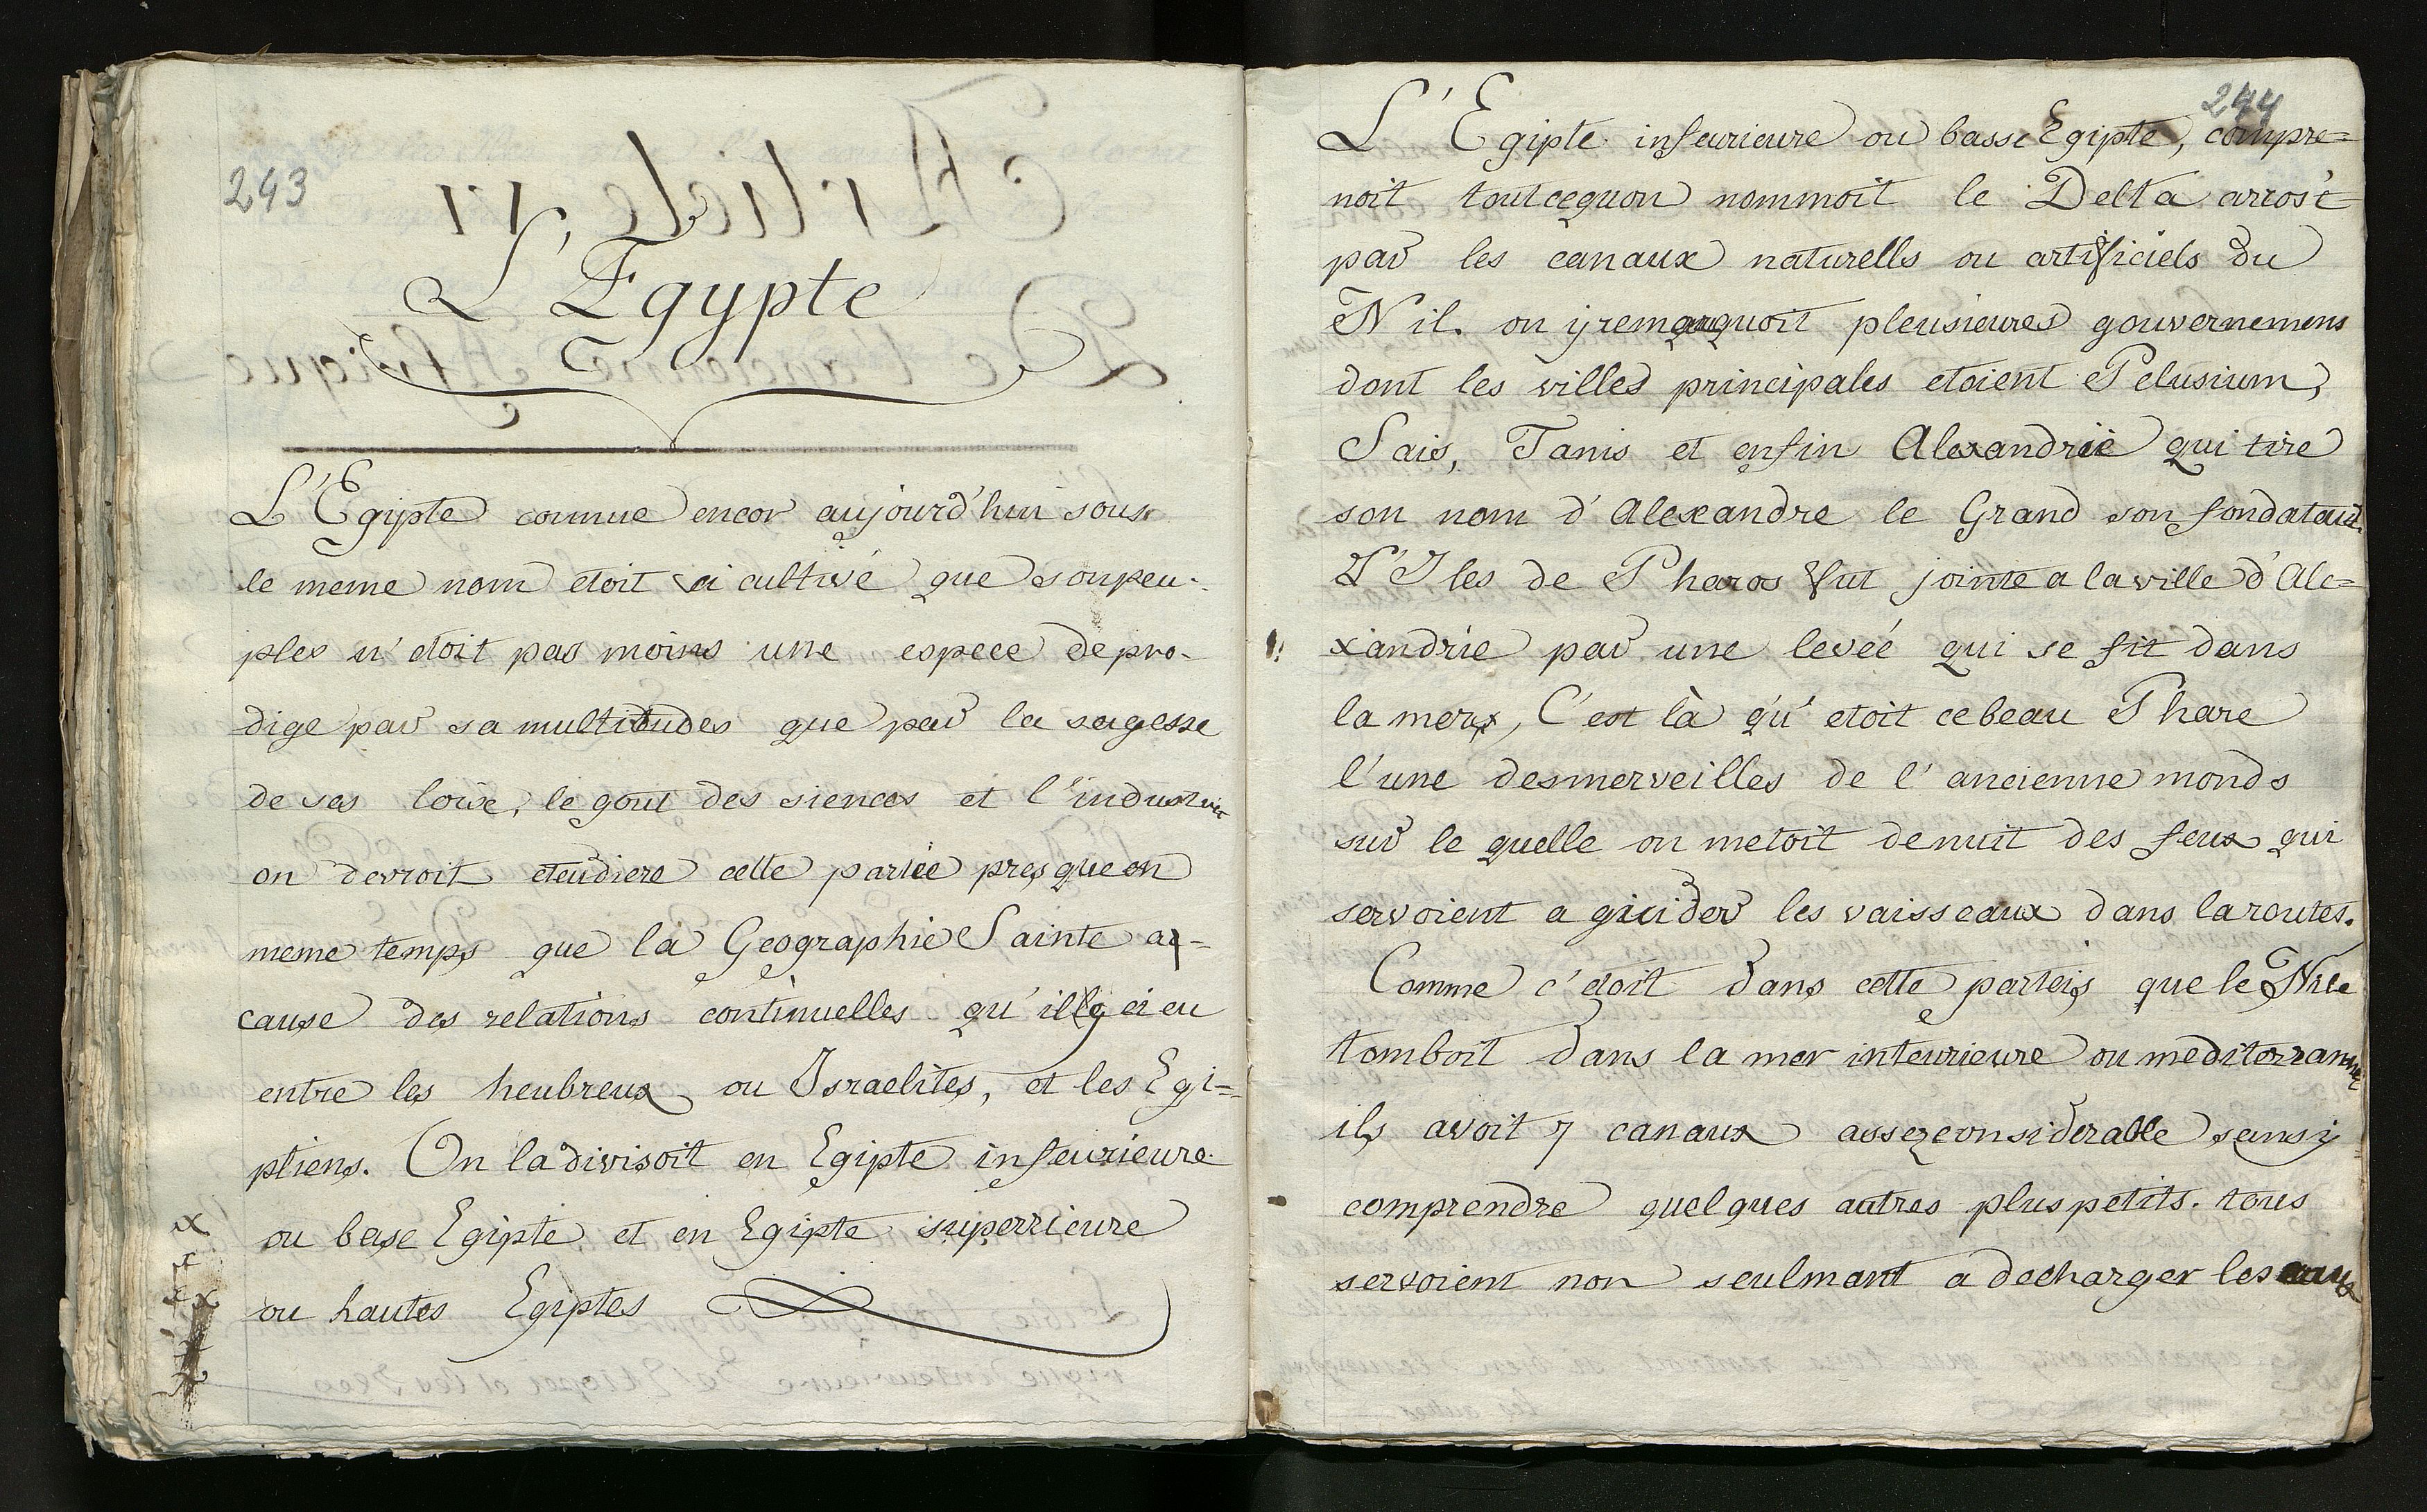 243
L'Egypte
L'Egipte connue encor aujourd'hui sous
le meme nom etoit si cultivé que son peu-
ples n'etoit pas moins une espece de pro-
dige par sa multitudes que par la sagesse
de ses loix, le gout des siences et l'industrie
on devroit eteudiere cette partiée presque en
meme temps que la Geographie Sainte a-
cause des relations continuelles qu'il y a eu
entre les heubreux ou Israelites, et les Egi=
ptiens. On la divisoit en Egipte inseurieure
ou base Egipte et en Egipte superrieure
ou hautes Egiptes
244
L'Egipte infeurieure ou basse Egipte, compre=
noit tout cequon nommoit le Delta arrosé
par les canaux naturells ou artificiels du
Nil. on y remarquoit pleusieures gouvernemens
dont les villes principales etoient Pelusium,
Sais, Tanis et enfin Alexandrie qui tire
son nom d'Alexandre le Grand son fondataur.
L'Iles de Pharos fut jointe a la ville d'Ale=
xandrie par une levéé qui se fit dans
la mer, C'est là qu'etoit ce beau Phare
l'une des merveilles de l'ancienne monds
sur le quelle on metoit de nuit des feux qui
servoient a guider les vaisseaux dans la routes.
Comme c'etoit dans cette parteis que le Nile
tomboit dans la mer inteurieure ou mediterrannee
ils avoit 7 canaux assez considerable sans y
comprendre quelques autres plus petits. tous
servoient non seulmant a decharger les eaux